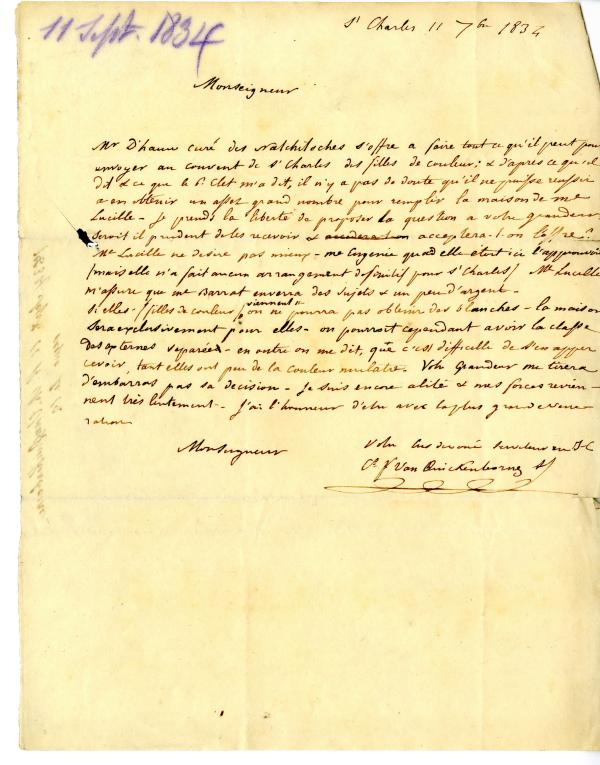 11 Sept. 1834
St Charles 11 7bre 1834
Monseigneur
Mr D'haun curé des Natchitoches s'offre a faire tout ce qu'il peut pour
envoyer au couvent de St Charles des filles de couleur; & d'après ce qu'il
dit & ce que le P. Clet m'a dit, il n'y a pas de doute qu'il ne puisse reussir
a en obtenir un assez grand nombre pour remplir la maison de me
Lucille - Je prends la liberté de proposer la question a votre grandeur,
seroit il prudent de les recevoir & acceptera-t-on l'offre?
Me Lucille ne desire pas mieux - me Eugenie quand elle étoit ici l'approuvoit
(mais elle n'a fait aucun arrangement definitif pour St Charles) Me Lucille
m'assure que me Barrat enverra des sujets & un peu d'argent -
Si elles (filles de couleur) viennent on ne pourra pas obtenir des blanches - la maison
sera exclusivement pour elles - on pourroit cependant avoir la classe
des externes separée - en outre on me dit, que c'est difficile de s'en apper
cevoir, tant elles ont peu de la couleur mulatre. Votre Grandeur me tirera
d'embarras par sa decision - Je suis encore alité & mes forces revien-
nent très lentement - J'ai l'honneur d'etre avec la plus grande vene
ration
Monseigneur
Votre tres devoué serviteur en J C
Ch. F. Van Quickenborne SJ